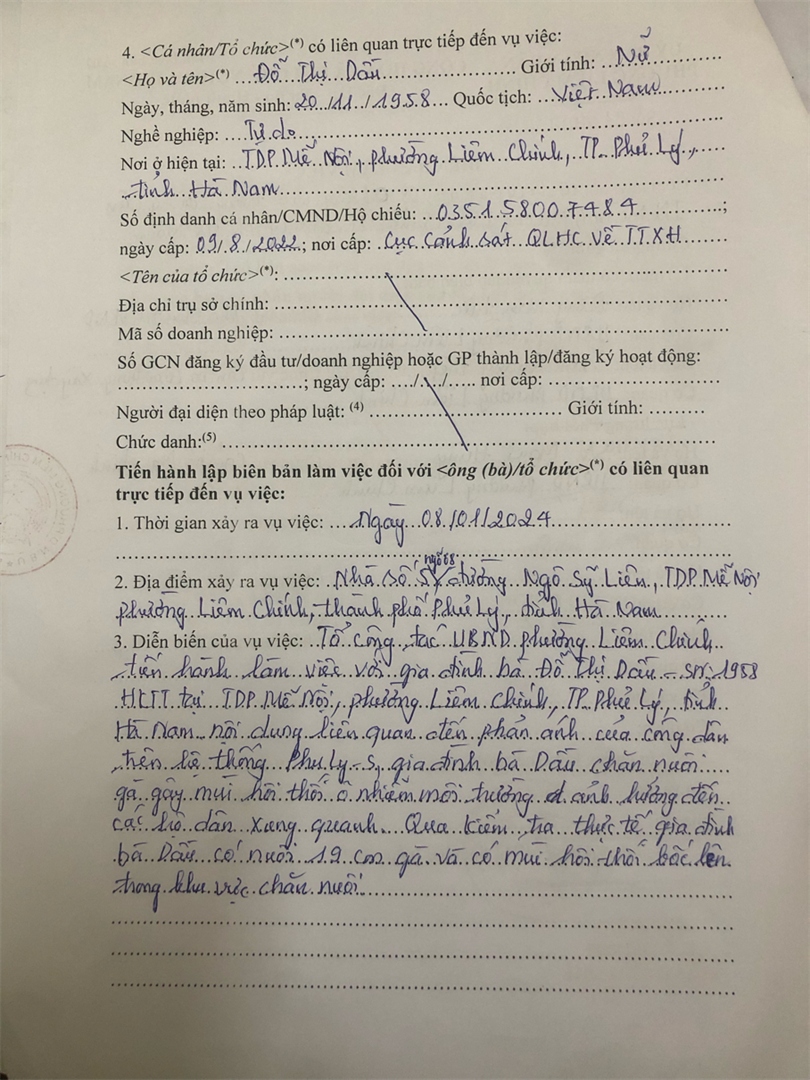 4. <Cá nhân/Tổ chức>(*) có liên quan trực tiếp đến vụ việc:
<Họ và tên>(*) ...Đỗ Thị Dấu... Giới tính: ...Nữ
Ngày, tháng, năm sinh: 20../11../1958... Quốc tịch: ...Việt Nam
Nghề nghiệp: ....Tự do...
Nơi ở hiện tại: ..TDP. Mễ Nội, phường Liêm Chính, TP. Phủ Lý,.....
tỉnh Hà Nam...
Số định danh cá nhân/CMND/Hộ chiếu: ...035158007484...;
ngày cấp: 09/.8./2022; nơi cấp: .Cục Cảnh sát QLHC về TTXH.......
<Tên của tổ chức>(*): ...
Địa chỉ trụ sở chính: ...
Mã số doanh nghiệp: ...
Số GCN đăng ký đầu tư/doanh nghiệp hoặc GP thành lập/đăng ký hoạt động:
...; ngày cấp: ..../..../..... nơi cấp: ...
Người đại diện theo pháp luật: (4) ... Giới tính: .........
Chức danh:(5) ...
Tiến hành lập biên bản làm việc đối với <ông (bà)/tổ chức>(*) có liên quan
trực tiếp đến vụ việc:
1. Thời gian xảy ra vụ việc: ....Ngày 08/01/2024...
ngõ 68
2. Địa điểm xảy ra vụ việc: ..Nhà số đường Ngô Sỹ Liên, TDP Mễ Nội
phường Liêm Chính, thành phố Phủ Lý, tỉnh Hà Nam...
3. Diễn biến của vụ việc: ..Tổ công tác UBND phường Liêm Chính
tiến hành làm việc với gia đình bà Đỗ Thị Dấu - SN: 1958
HKTT tại TDP. Mễ Nội, phường Liêm Chính, TP. Phủ Lý, tỉnh
Hà Nam nội dung liên quan đến phản ánh của công dân
trên hệ thống Phu Ly - S, gia đình bà Dấu chăn nuôi....
gà gây mùi hôi thối ô nhiễm môi trường ảnh hưởng đến
các hộ dân xung quanh. Qua kiểm tra thực tế gia đình
bà Dấu có nuôi 19 con gà và có mùi hôi thối bốc lên
trong khu vực chăn nuôi...